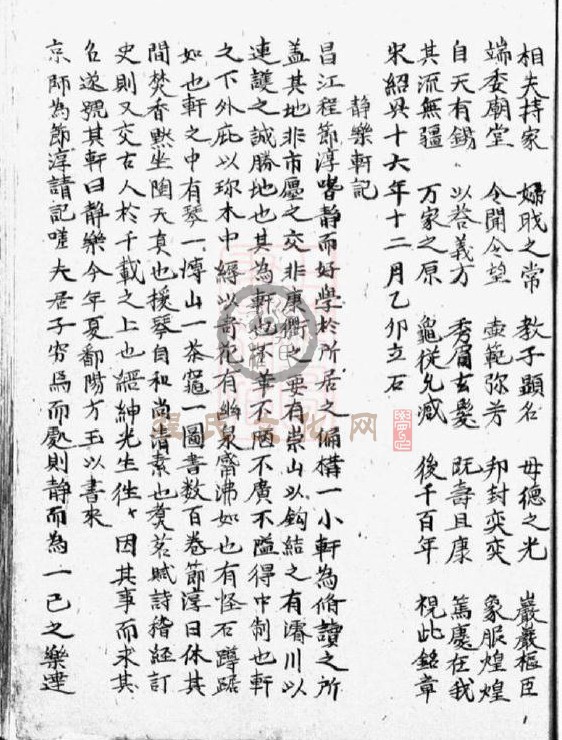 相夫持家 婦職之常 教子顯名 母德之光 巖巖樞臣
端委廟堂 令聞令望 壼範弥芳 邦封奕奕 象服煌煌
自天有錫 以荅義方 秀眉玄髮 既壽且康 篤慶在我
其流無疆 万家之原 龜從允臧 後千百年 視此銘章
宋紹興十六年十二月乙卯立石
静樂軒記
昌江程節淳嗜静而好學於所居之偏構一小軒為脩讀之所
盖其地非市廛之交非康衢之要有崇山以鈎結之有濬川以
連護之誠勝地也其為軒也不華不陋不廣不隘得中制也軒
之下外庇以珎木中緝以奇花有幽泉觱沸如也有怪石蹲踞
如也軒之中有琴一博山一茶竈一圖書数百卷節淳日休其
間焚香默坐陶天真也援琴自和尚清素也煑茗賦詩稽經訂
史則又交古人於千載之上也縉紳先生徃々因其事而求其
名遂號其軒曰静樂今年夏鄱陽方玉以書來
京師為節淳請記嗟夫君子穷焉而處則静而為一已之樂達